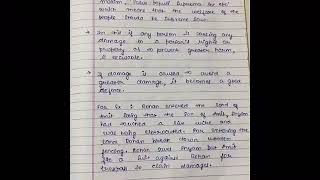 maxim, 'Salus Populi Suprema lex Est'
which means that the welfare of the
people Should be Supreme law.
→ In this if any person is causing any
damage to a person's rights or
property as to prevent greater harm,
is excusable.
→ If damage is caused to avoid a
greater damage, it becomes a good
defence.
For Ex : Rohan entered the land of
Amit Seeing that the Son of Amit,
had touched a live wire and
was being electrocuted. For entering the
land, Rohan broke down wooden
fencing. Rohan saved but Amit
file a Suit against Rohan for
trespass to claim damages.